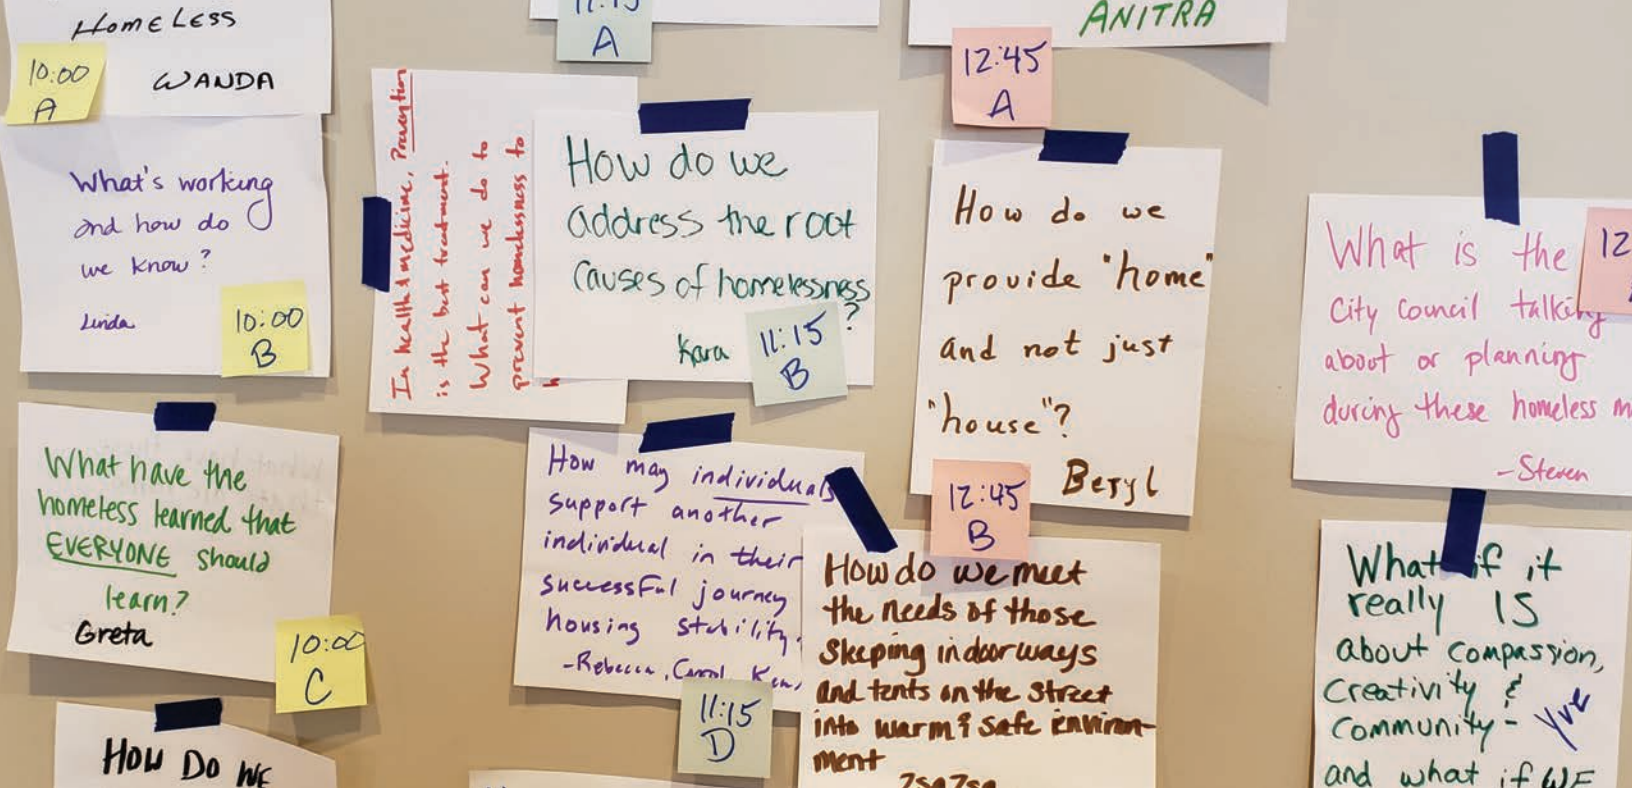 HOMELESS
WANDA
10:00
A
What's working
and how do
we know?
Linda
10:00
B
What have the
homeless learned that
EVERYONE should
learn?
Greta
10:00
C
HOW DO WE
11:15
A
In health & medicine, Prevention
is the best treatment.
What can we do to
prevent homelessness to
How do we
address the root
causes of homelessness
?
Kara
11:15
B
How may individuals
support another
individual in their
successful journey
housing stability.
-Rebecca, Carol, Ken,
11:15
D
ANITRA
12:45
A
How do we
provide "home"
and not just
"house"?
Beryl
12:45
B
How do we meet
the needs of those
Sleeping in doorways
and tents on the street
into warm & safe environ-
ment
ZsaZsa
What is the
12
City Council talking
about or planning
during these homeless
-Steven
What if it
really IS
about compassion,
Creativity &
Community-
Yve
and what if WE